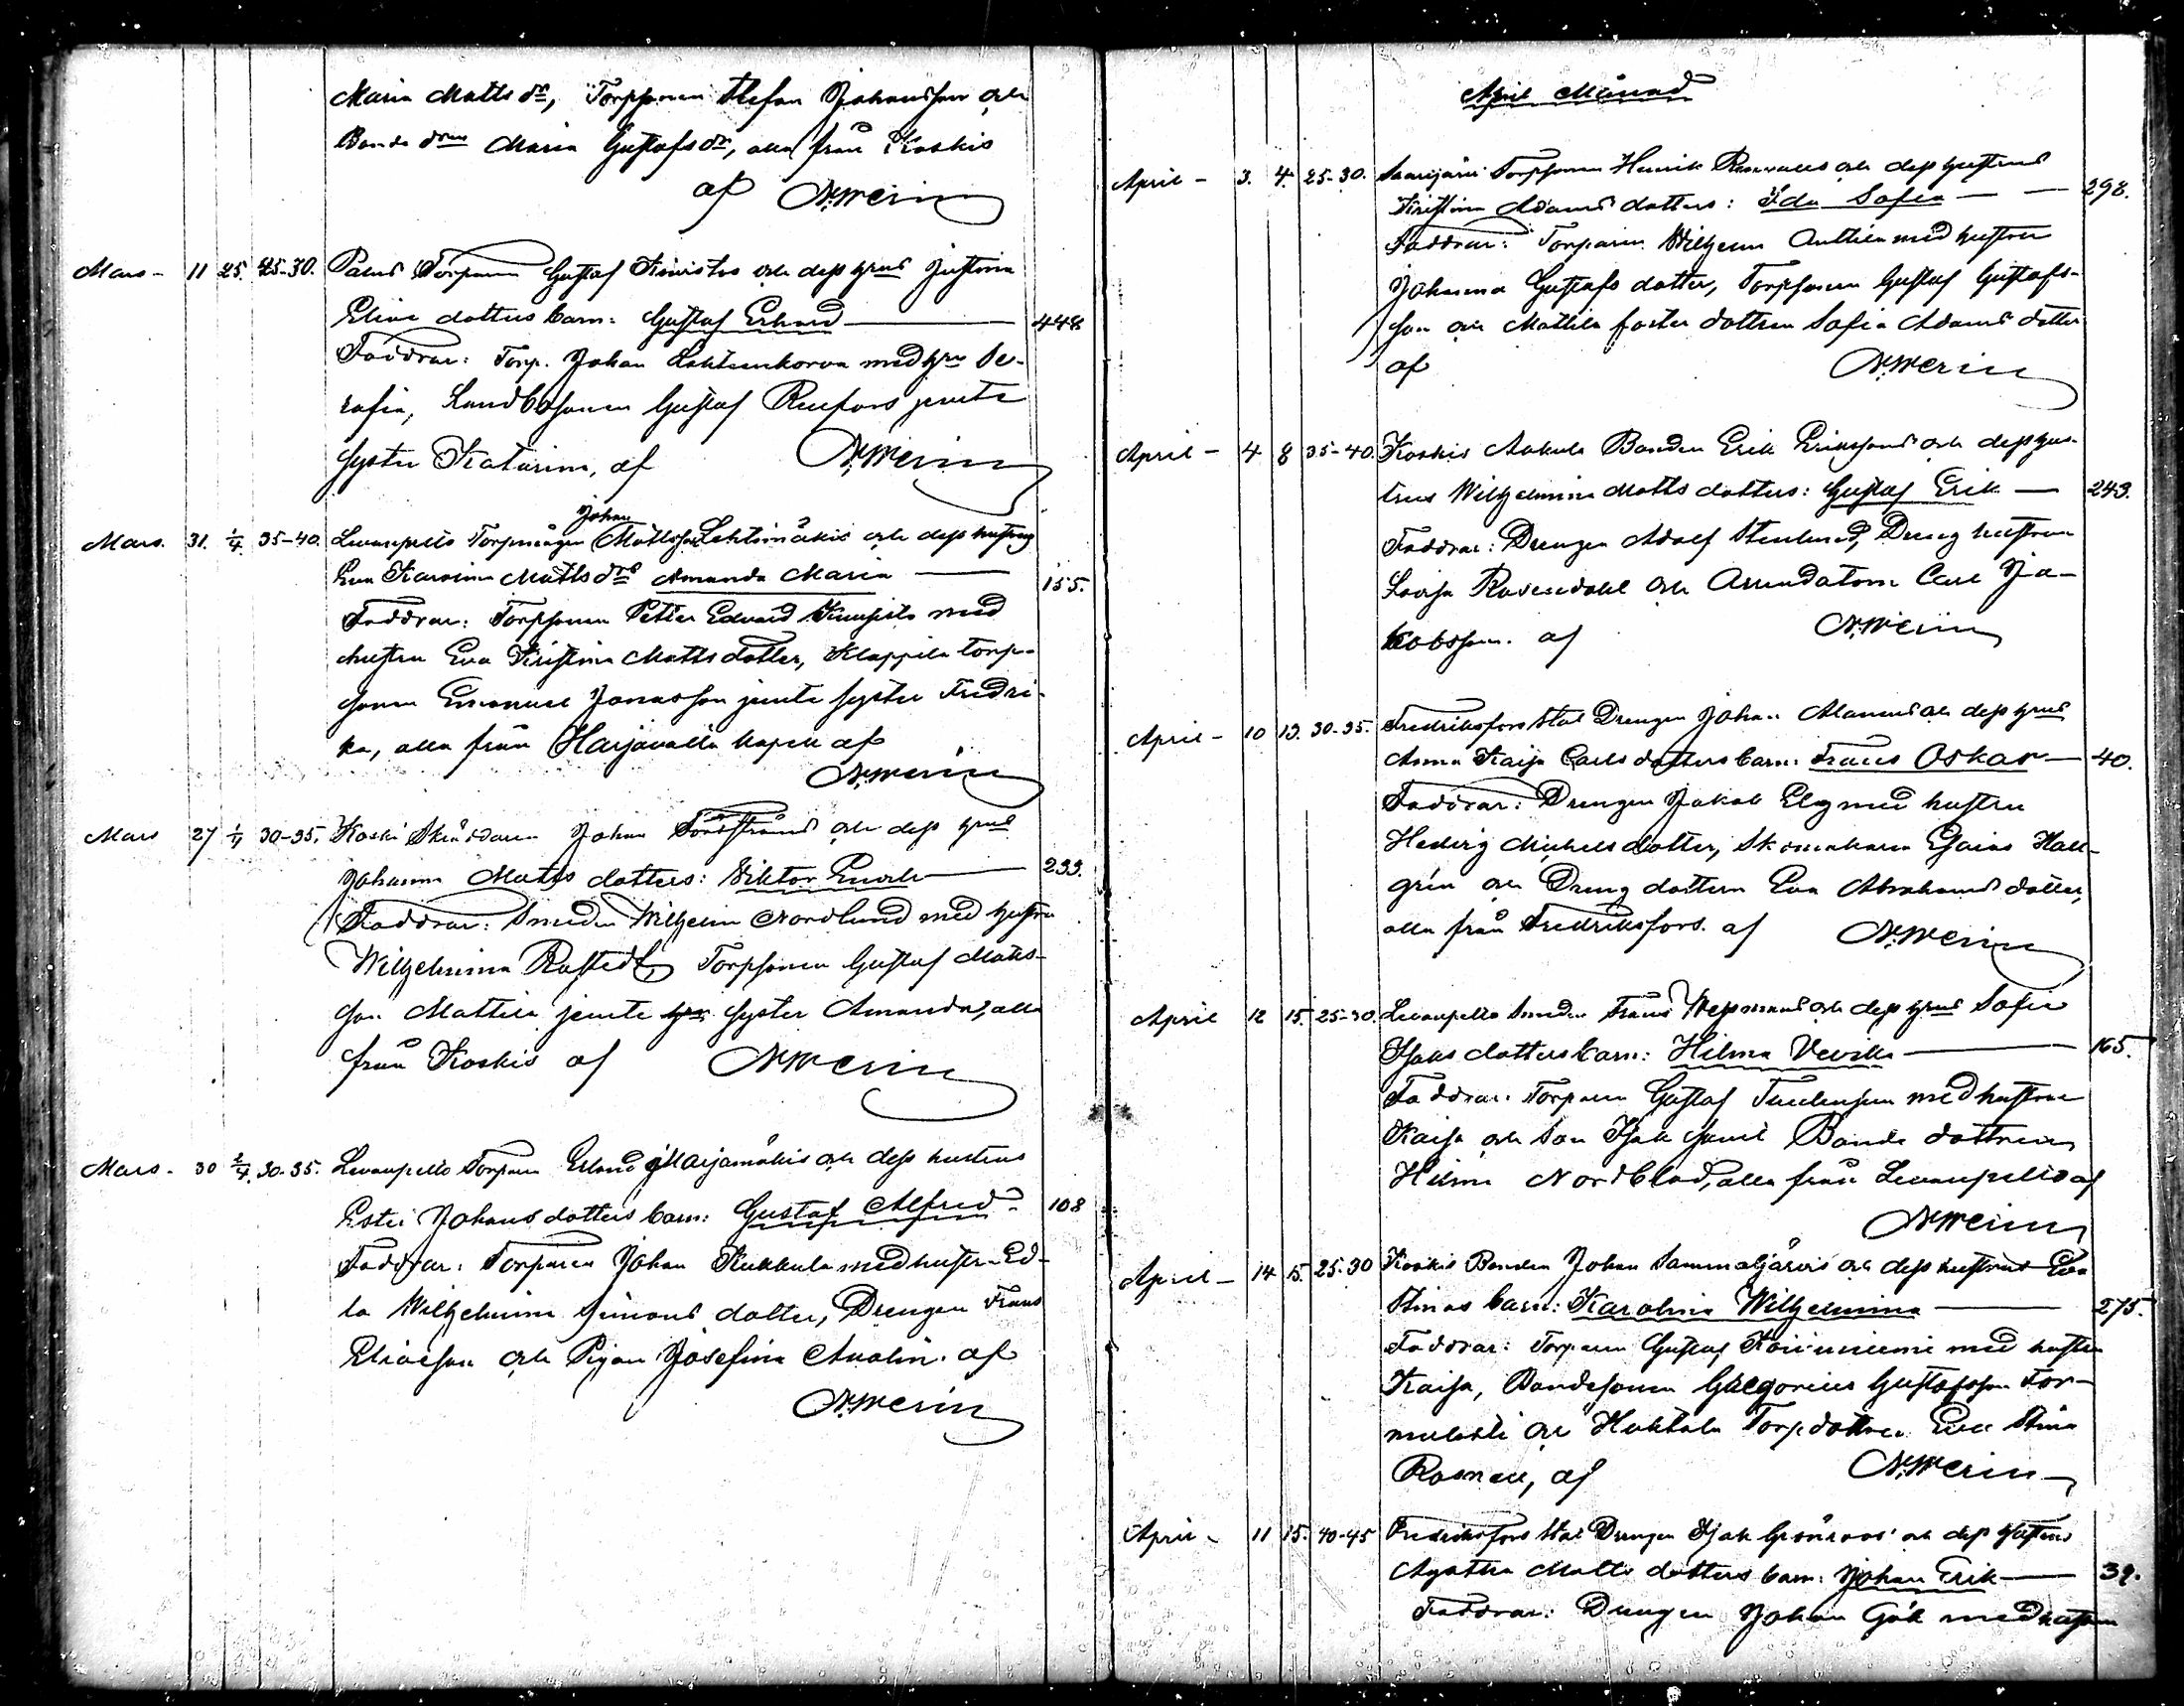 Maria Matts dr, Torpsonen Stefan Johansson och
Bonde drn Maria Gustafs dr, alla från Koskis
af N. Merin
Mars - 11 25. 25-30. Palus Torparen Gustaf Kivistös och dess hrus Justina
Elias dotters barn: Gustaf Erhard 448
Faddrar: Torp. Johan Lahteenkorva med hru Se-
rafia, Landbosonen Gustaf Renfors jemte
syster Katarina, af N. Merin
Johan
Mars. 31. 1/4 35-40. Levanpelto Torpmågen Mattsson Lehtimäkis och dess hustrus
Eva Karolina Matts drs Amanda Maria 155.
Faddrar: Torpsonen Petter Edvard Kuusisto med
hustru Eva Kristina Matts dotter, Klappila torp-
sonen Emanuel Jonasson jemte syster Fredri-
ka, alla från Harjavalta kapell af
N. Merin
Mars 27 1/4 30-35. Koski Skräddaren Johan och dess hrus
Johanna Matts dotters: Viktor 233.
Faddrar: Smeden Wilhelm Nordlund med hustru
Wilhelmina Rostedt, Torpsonen Gustaf Matts-
son Mattila jemte syster Amanda, alla
från Koskis af N. Merin
Mars - 30 2/4. 30-35. Levanpelto Torparen Erland Marjamäkis och dess hustrus
Ester Johans dotters barn: Gustaf Alfred - 108
Faddrar: Torparen Johan Kukkula med hustru Ed-
la Wilhelmina Simons dotter, Drengen Frans
Eliasson och Pigan Josefina Analin. af
N. Merin
April Månad
April - 3. 4. 25-30. Saarijärvi Torpsonen Henrik och dess hustrus
Kristina Adams dotters: Ida Sofia - - 298.
Faddrar: Torparen Wilhelm Anttila med hustru
Johanna Gustafs dotter, Torpsonen Gustaf Gustafs-
son och Mattila foster dottren Sofia Adams dotter
af N. Merin
April - 4 8 35-40. Koskis Aakula Bonden Erik Erikssons och dess hus-
trus Wilhelmina Matts dotters: Gustaf Erik - 243.
Faddrar: Drengen Adolf Stenlund, Dreng hustrun
Lovisa Rosendahl och Arrendatorn Carl Ja-
kobsson. af N. Merin
April - 10 13. 30-35. Fredriksfors Stat Drengen Johan Alanens och dess hrus
Anna Kaisa Carls dotters barn: Frans Oskar - 40.
Faddrar: Drengen Jakob Elg med hustru
Hedvig Michels dotter, Skomakaren Gaius Hall-
grén och Dreng dottern Eva Abrahams dotter,
alla från Fredriksfors. af N. Merin
April 12 15. 25-30. Levanpelto Smeden Frans Wessmans och dess hrus Sofia
Isaks dotters barn: Hilma 165.
Faddrar: Torparen Gustaf med hustru
Kaisa och Son Isak samt Bonde dottren
Hilma Nordblad, alla från Levanpelto af
N. Merin
April - 14 15. 25-30 Koskis Bonden Johan Sammaljärvis och dess hustrus Eva
Stinas barn: Karolina Wilhelmina 275.
Faddrar: Torparen Gustaf Koivuniemi med hustru
Kaisa, Bondesonen Gregorius Gustafsson Tor-
mulehti och Huhtala Torpdottren Eva Stina
af N. Merin
April - 11 15. 40-45 Fredriksfors Stat Drengen Isak Grönroos' och dess hustrus
Agatha Matts dotters barn: Johan Erik 39.
Faddrar: Drengen Johan Gök med hustru